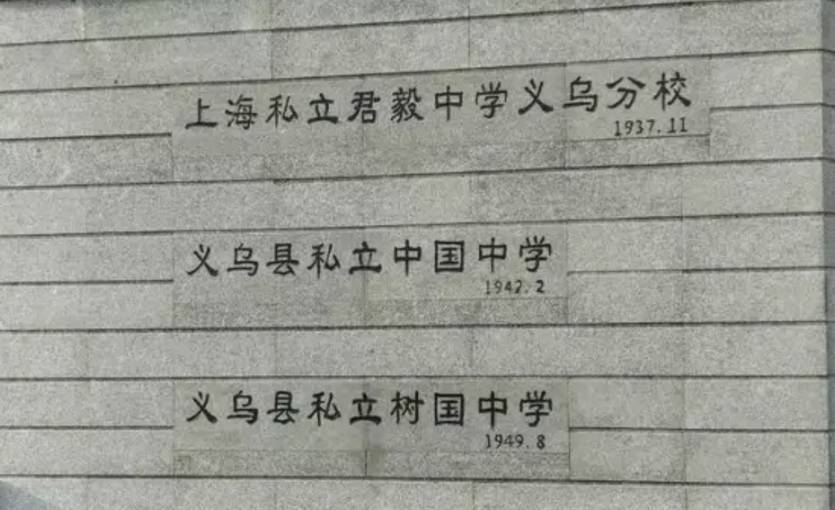 上海私立君毅中学义乌分校
1937.11
义乌县私立中国中学
1942.2
义乌县私立树国中学
1949.8